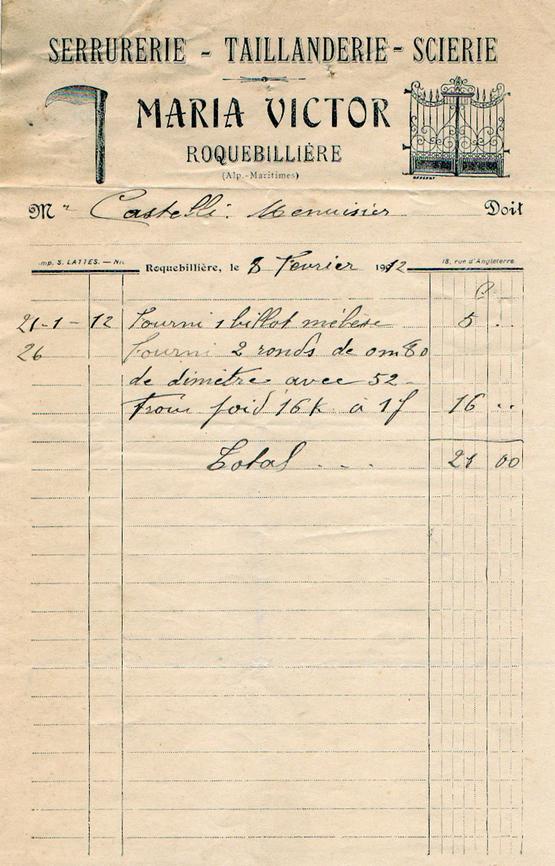 SERRURERIE - TAILLANDERIE - SCIERIE
MARIA VICTOR
ROQUEBILLIÈRE
(Alp.-Maritimes)
Mr Castelli. Menuisier Doit
Imp. S. LATTES. — Ni 18, rue d'Angleterre
Roquebillière, le 8 Fevrier 1912
21-1-12 Fourni 1 billot mélèze 5 ..
26 fourni 2 ronds de 0m80
de dimetre avec 52
trous poid 16k à 1f 16 ..
Total .... 21 00